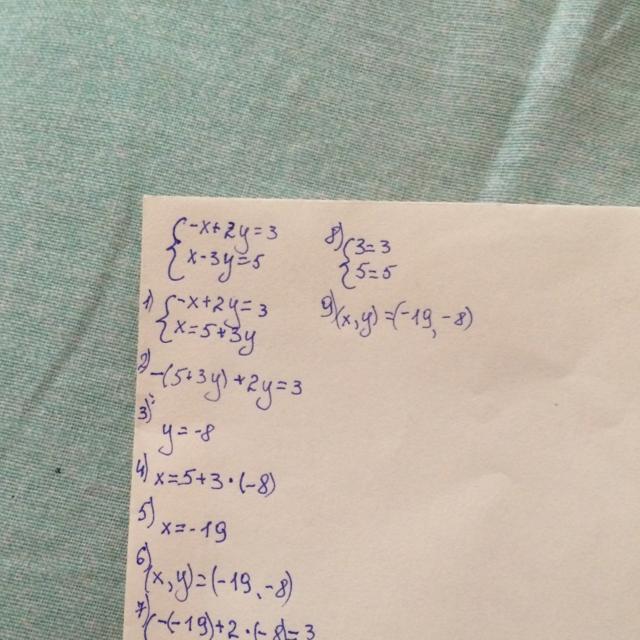 {-x+2y=3
{x-3y=5
1) {-x+2y=3
{x=5+3y
2) -(5+3y)+2y=3
3)
y=-8
4) x=5+3·(-8)
5) x=-19
6) (x,y)=(-19,-8)
7) {-(-19)+2·(-8)=3
8) {3=3
{5=5
9) (x,y)=(-19,-8)